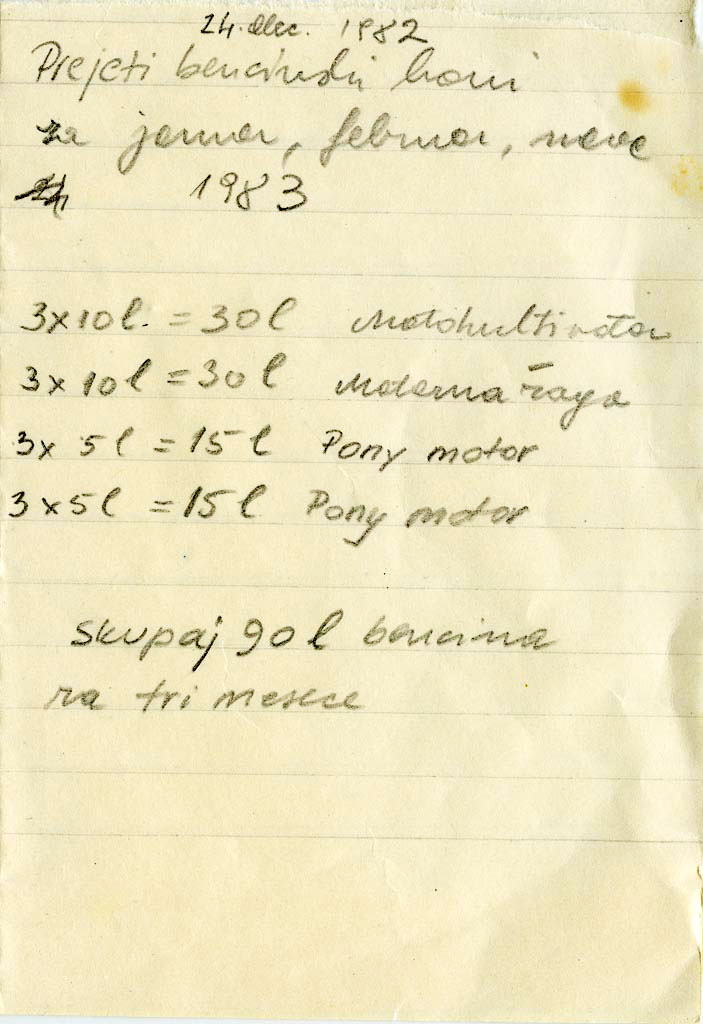 24. dec. 1982
Prejeti bencinski boni
za januar, februar, marec
24
1983
3x10 l. = 30 l Motokultivator
3x 10 l = 30 l Motorna žaga
3x 5 l = 15 l Pony motor
3 x 5 l = 15 l Pony motor
skupaj 90 l bencina
za tri mesece